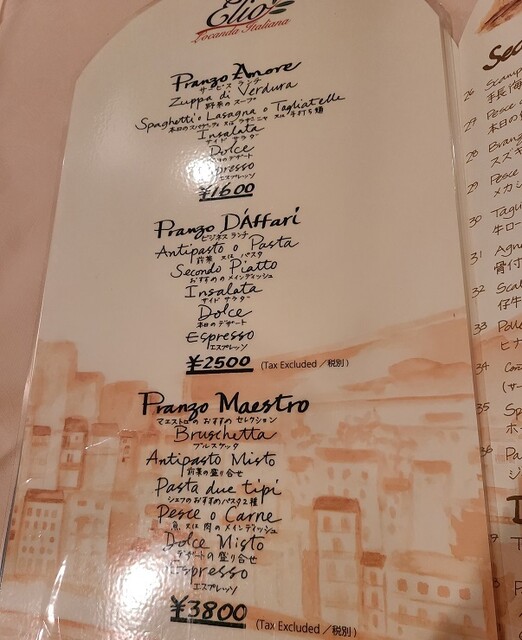 Elio
Locanda Italiana
Pranzo Amore
サービス ランチ
Zuppa di Verdura
野菜のスープ
Spaghetti o Lasagna o Tagliatelle
本日のスパゲッティ 又は ラザニア 又は 手打ち麺
Insalata
サイド サラダ
Dolce
本日のデザート
Espresso
エスプレッソ
¥1600
Pranzo D'Affari
ビジネス ランチ
Antipasto o Pasta
前菜 又は パスタ
Secondo Piatto
おすすめのメインディッシュ
Insalata
サイド サラダ
Dolce
本日のデザート
Espresso
エスプレッソ
¥2500 (Tax Excluded／税別)
Pranzo Maestro
マエストロの おすすめ セレクション
Bruschetta
ブルスケッタ
Antipasto Misto
前菜の盛り合せ
Pasta due tipi
シェフのおすすめパスタ2種
Pesce o Carne
魚 又は 肉の メインディッシュ
Dolce Misto
デザートの 盛り合せ
Espresso
エスプレッソ
¥3800 (Tax Excluded／税別)
26
手長海
27 Pesce
本日の
28
スズキ
29 Pesce
メカジ
30
牛ロー
31
骨付
32
仔牛
33
ヒナ
34
35
36